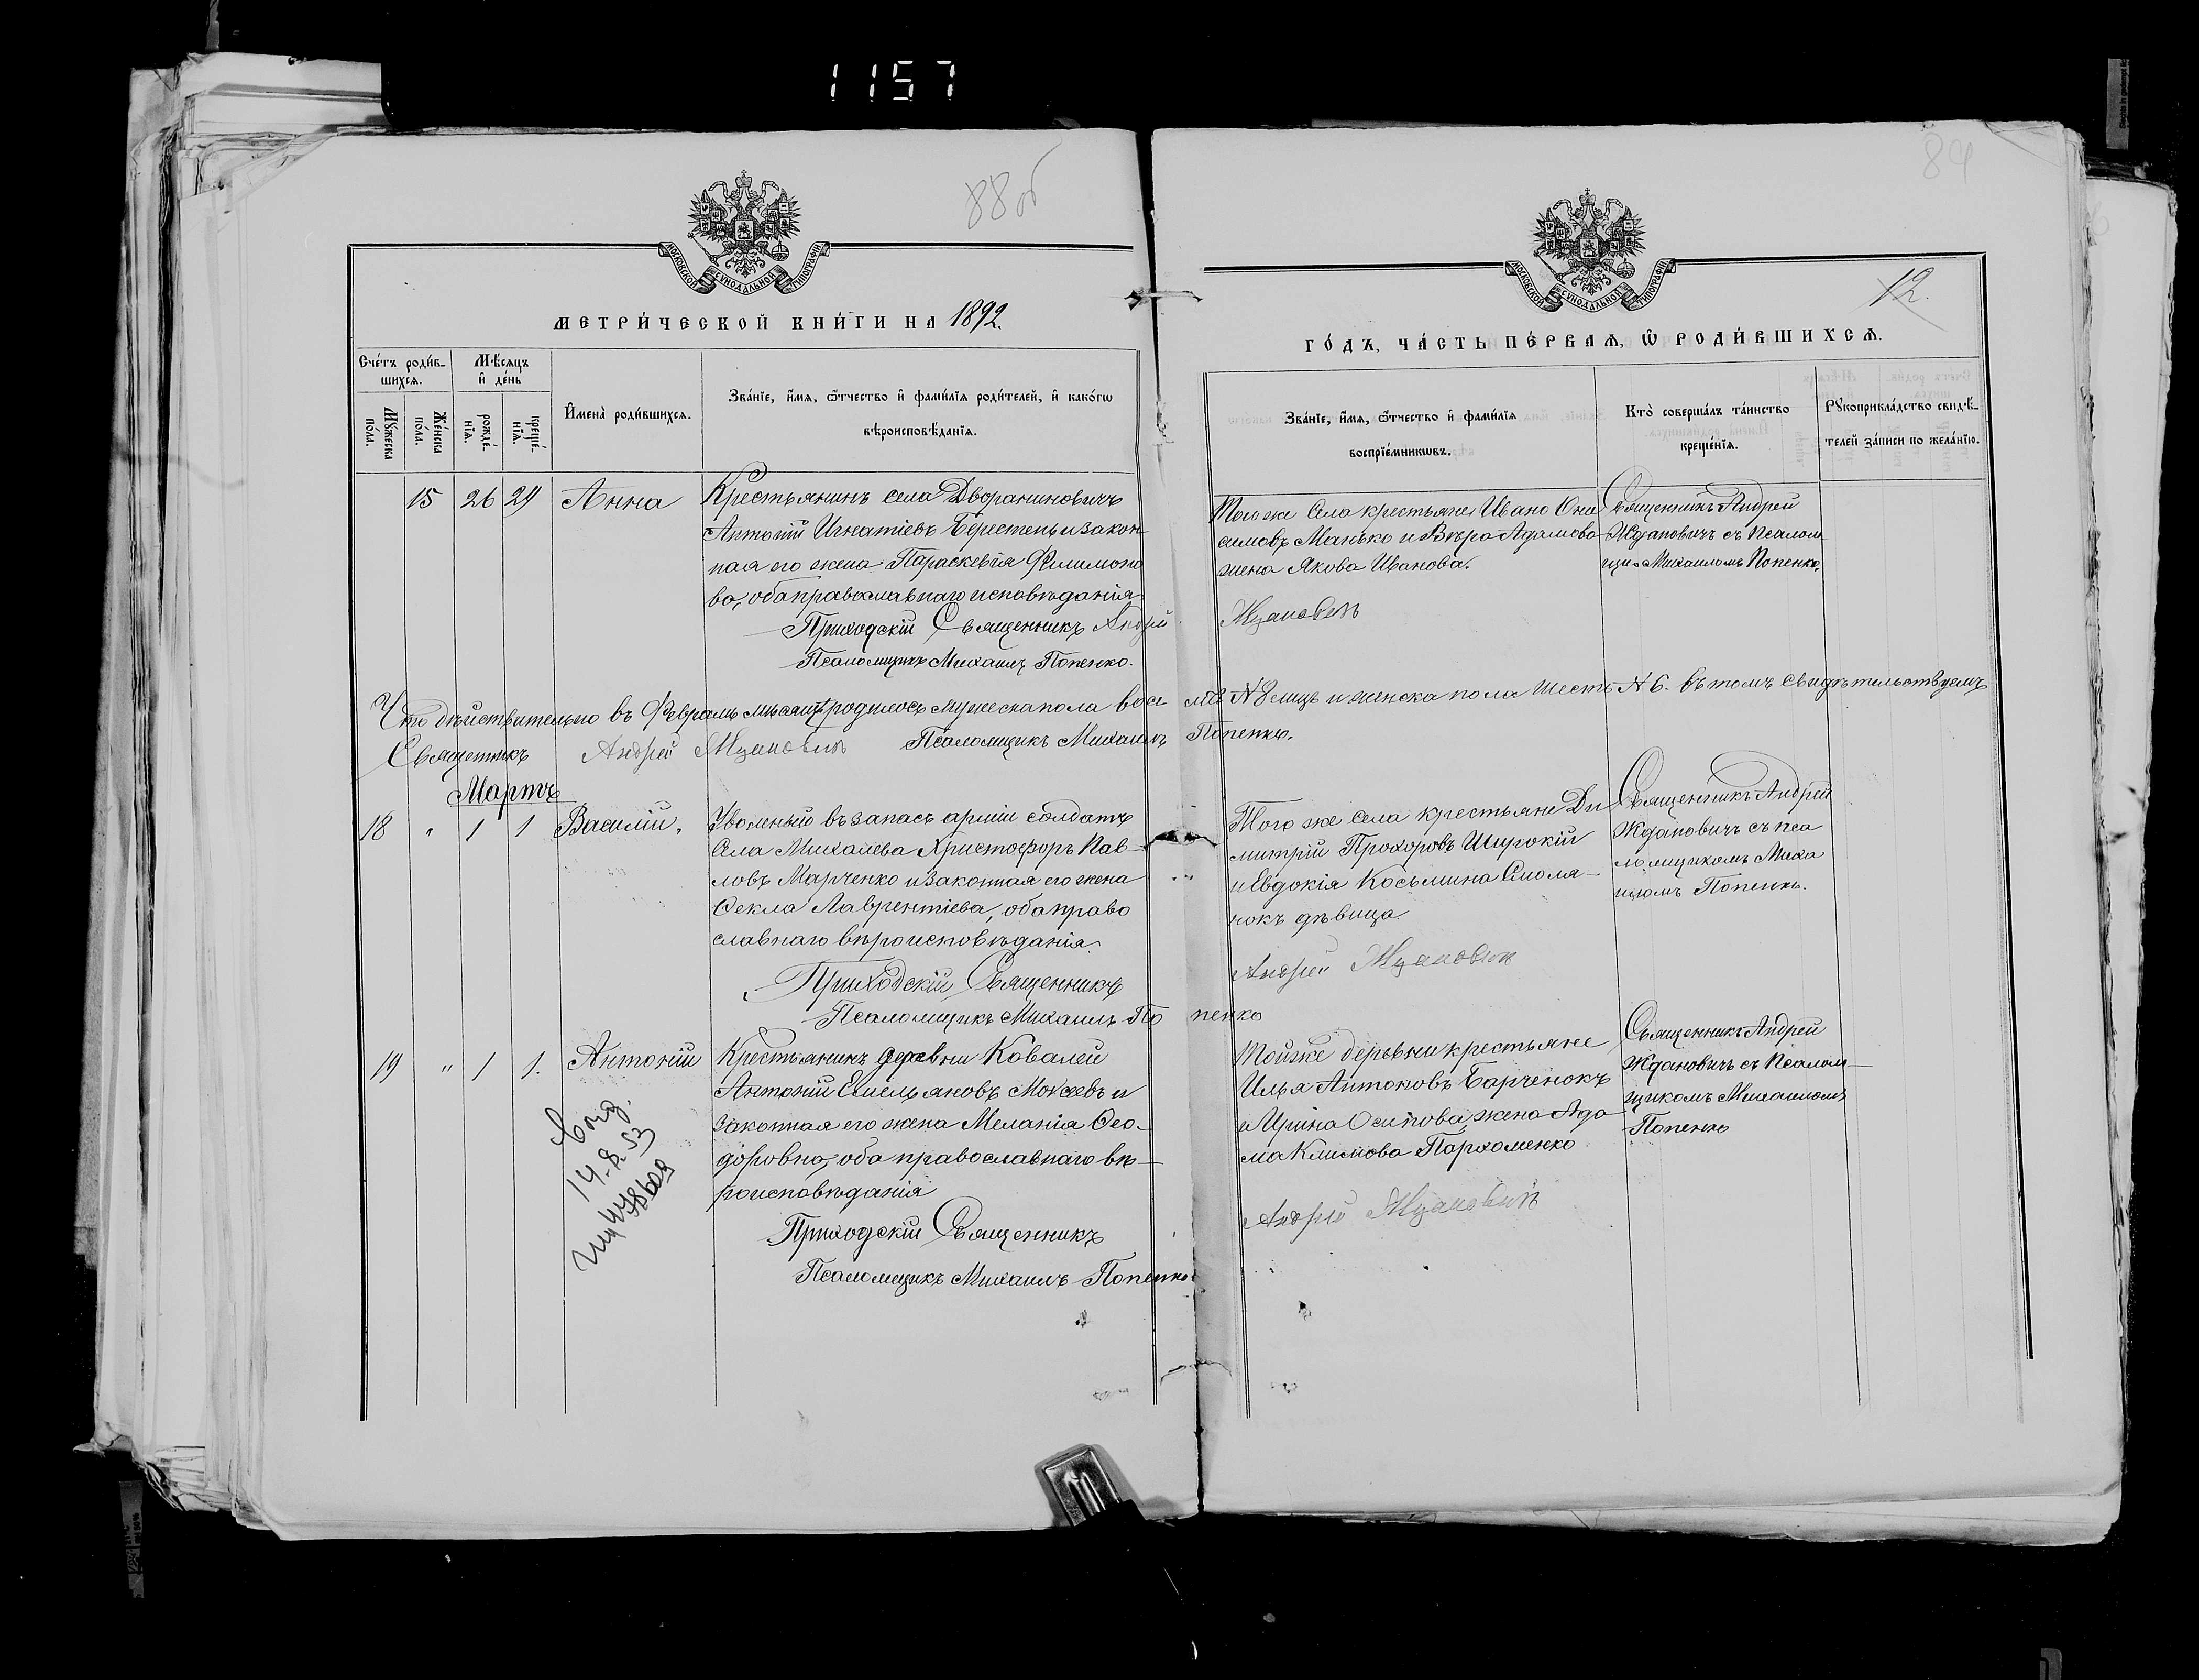 1157
88 об
84
МОСКОВСКОЙ СѴНОДАЛЬНОЙ ТИПОГРАФІИ
МОСКОВСКОЙ СѴНОДАЛЬНОЙ ТИПОГРАФІИ
12.
МЕТРИ́ЧЕСКОЙ КНИ́ГИ НА 1892.
ГО́ДЪ, ЧА́СТЬ ПЕ́РВАѦ, Ѡ РОДИ́ВШИХСѦ.
Сче́тъ роди́в-
шихсѧ.
Мꙋжеска по́ла.
Же́нска по́ла.
Мѣ́сѧцъ
и де́нь
рожде́-
нїѧ.
креще́-
нїѧ.
И҆мена̀ роди́вшихсѧ.
Зва́нїе, и҆́мѧ, ѻ҆́тчество и҆ фами́лїѧ роди́телей, и҆ како́гѡ
вѣроисповѣ́данїѧ.
Зва́нїе, и҆́мѧ, ѻ҆́тчество и҆ фами́лїѧ
воспрїе́мникѡвъ.
Кто̀ соверша́лъ та́инство
креще́нїѧ.
Рꙋкоприкла́дство свидѣ́-
телей за́писи по жела́нїю.
15 26 29 Анна
Крестьянинъ села Дворaниновичъ
Антоній Игнатіевъ Берестень и закон
ная его жена Параскевія Филимоно
ва, оба православнаго исповѣданія
Приходскій Священникъ Андрей
Псаломщикъ Михаилъ Попенко.
Того же села крестьяне Иванъ Они
симовъ Манько и Вѣра Адамова
жена Якова Иванова.
Ждановичъ
Священникъ Андрей
Ждановичъ съ Псалом
щик. Михаиломъ Попенко.
Что дѣйствительно въ Февралѣ мѣсяцѣ родилось мужеска пола восемь № 8 лицъ и женска пола шесть № 6. въ томъ свидѣтельствуемъ
Священникъ Андрей Ждановичъ Псаломщикъ Михаилъ Попенко.
Мартъ
18 " 1 1 Василій.
Уволеный въ запасъ арміи солдатъ
села Михалева Христофоръ Пав-
ловъ Марченко и законная его жена
Ѳекла Лаврентіева, оба право
славнаго вѣроисповѣданія
Приходскій Священникъ
Псаломщикъ Михаилъ Попенко
Того же села крестьяне Ди
митрій Прохоровъ Широкій
и Евдокія Косьмина Смоля-
нокъ дѣвица
Андрей Ждановичъ
Священникъ Андрей
Ждановичъ съ пса
ломщикомъ Миха
иломъ Попенко.
19 " 1 1. Антоній
14.8.53
Крестьянинъ деревни Ковалей
Антоній Емельяновъ Мокеевъ и
законная его жена Меланія Ѳео-
доровна, оба православнаго вѣ-
роисповѣданія
Приходскій Священникъ
Псаломщикъ Михаилъ Попенко
Той же деревни крестьяне
Илья Антоновъ Барченокъ
и Ирина Осипова, жена Ада
ма Климова Пархоменко
Андрей Ждановичъ
Священникъ Андрей
Ждановичъ съ Псалом-
щикомъ Михаиломъ
Попенко